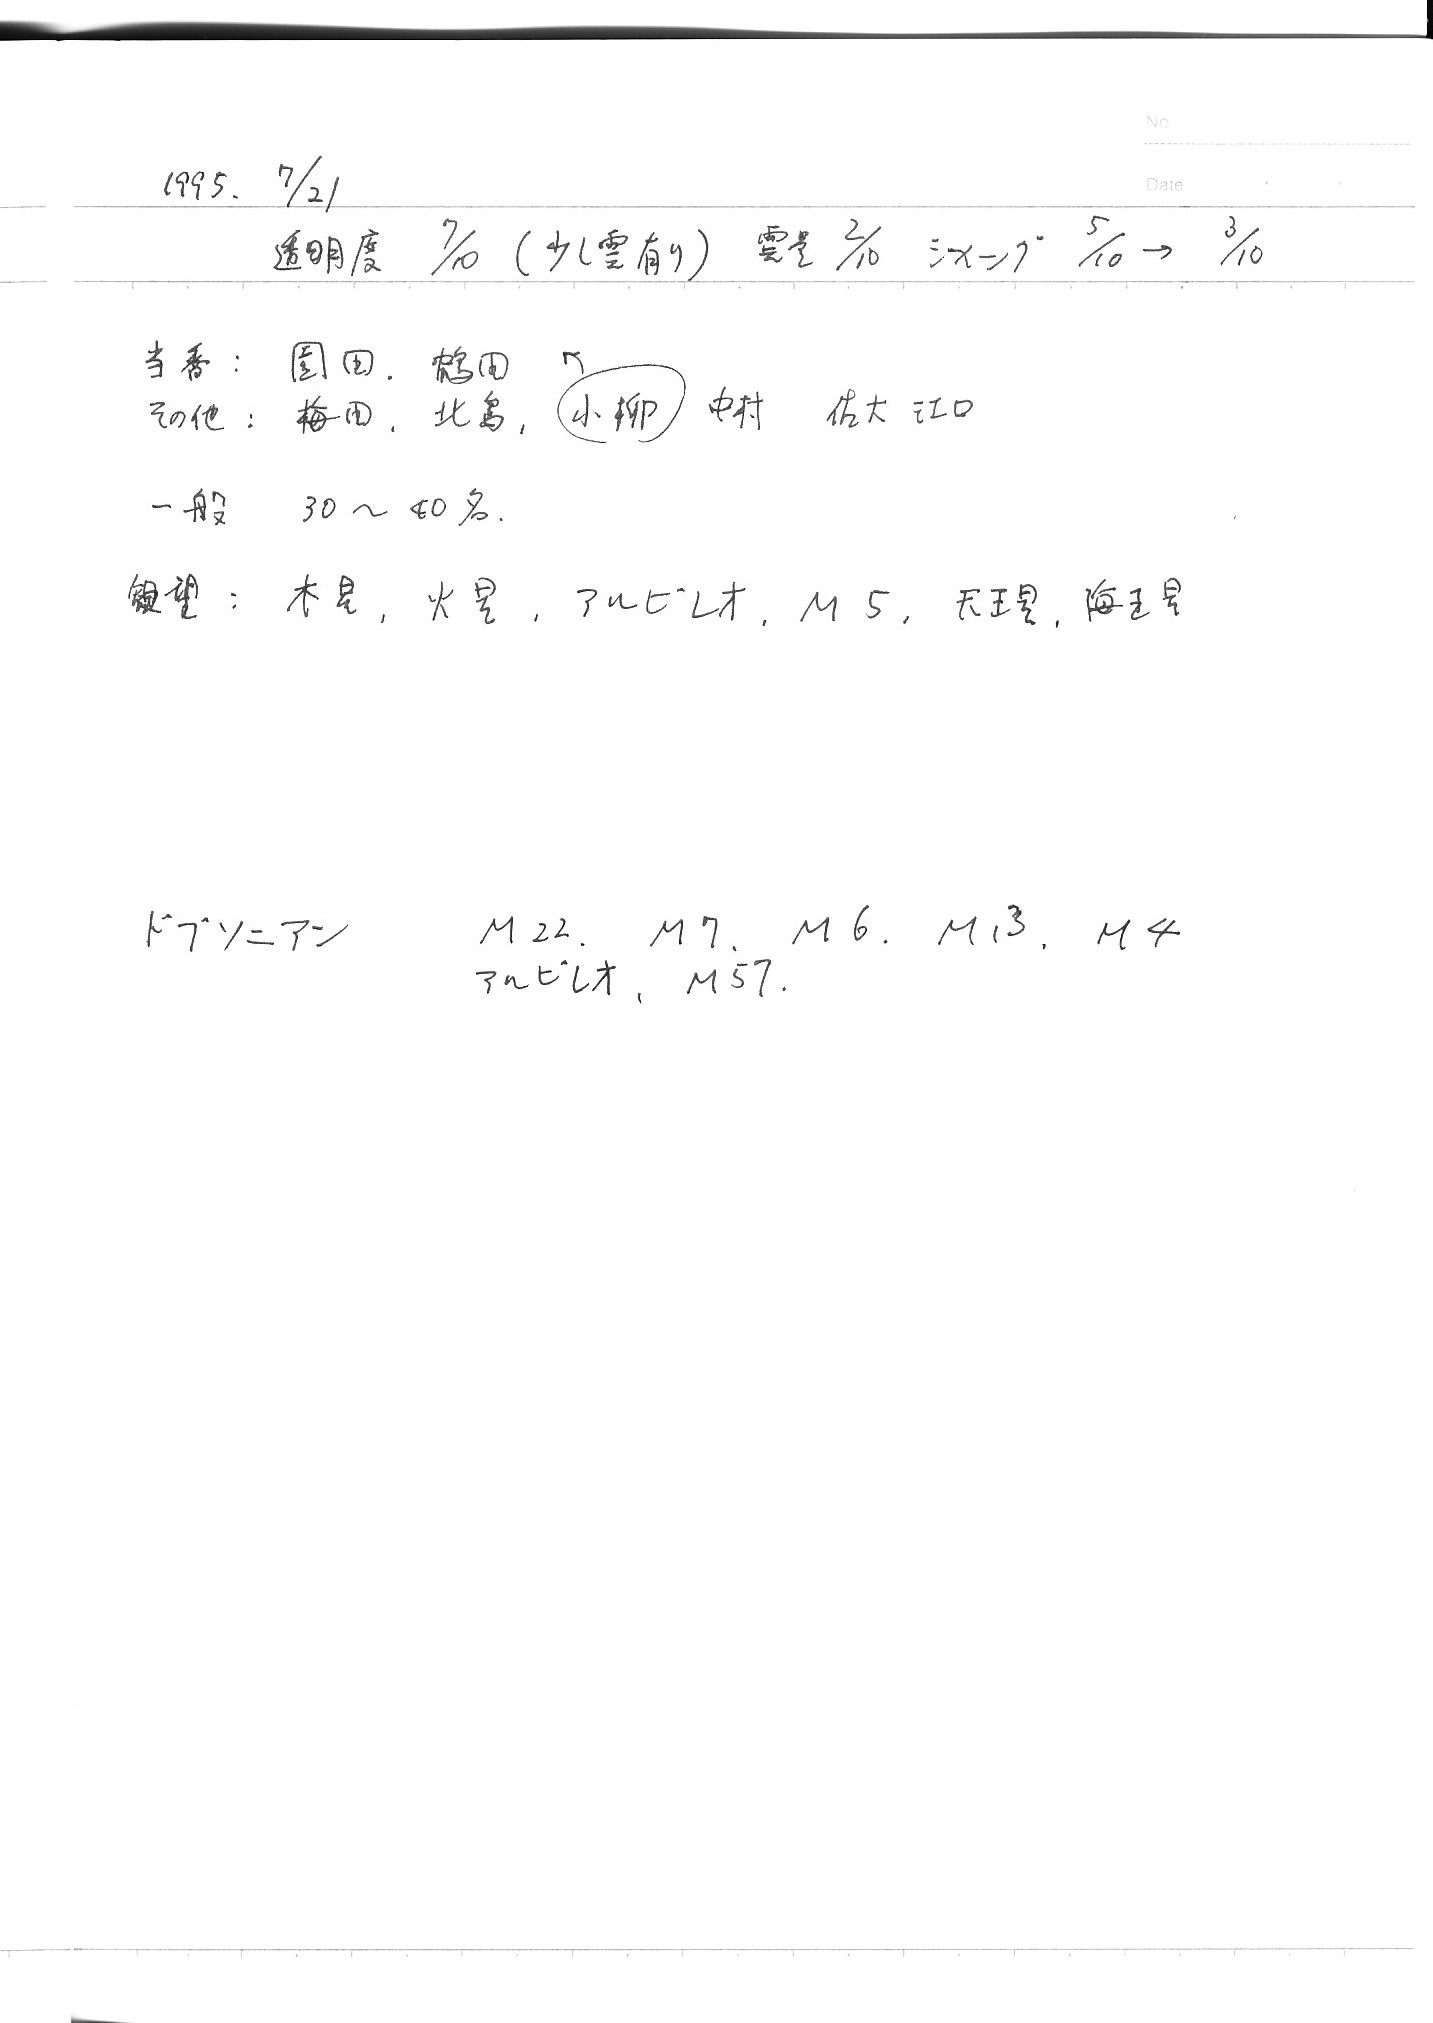 No
Date
1995. 7/21
透明度 7/10 (少し雲有り) 雲量 2/10 シーイング 5/10 → 3/10
当番: 園田. 鶴田
その他: 梅田, 北島, 小柳 中村 佐大 江口
一般 30〜40名.
観望: 木星, 火星, アルビレオ, M5, 天王星, 海王星
ドブソニアン M22. M7. M6. M13. M4
アルビレオ, M57.